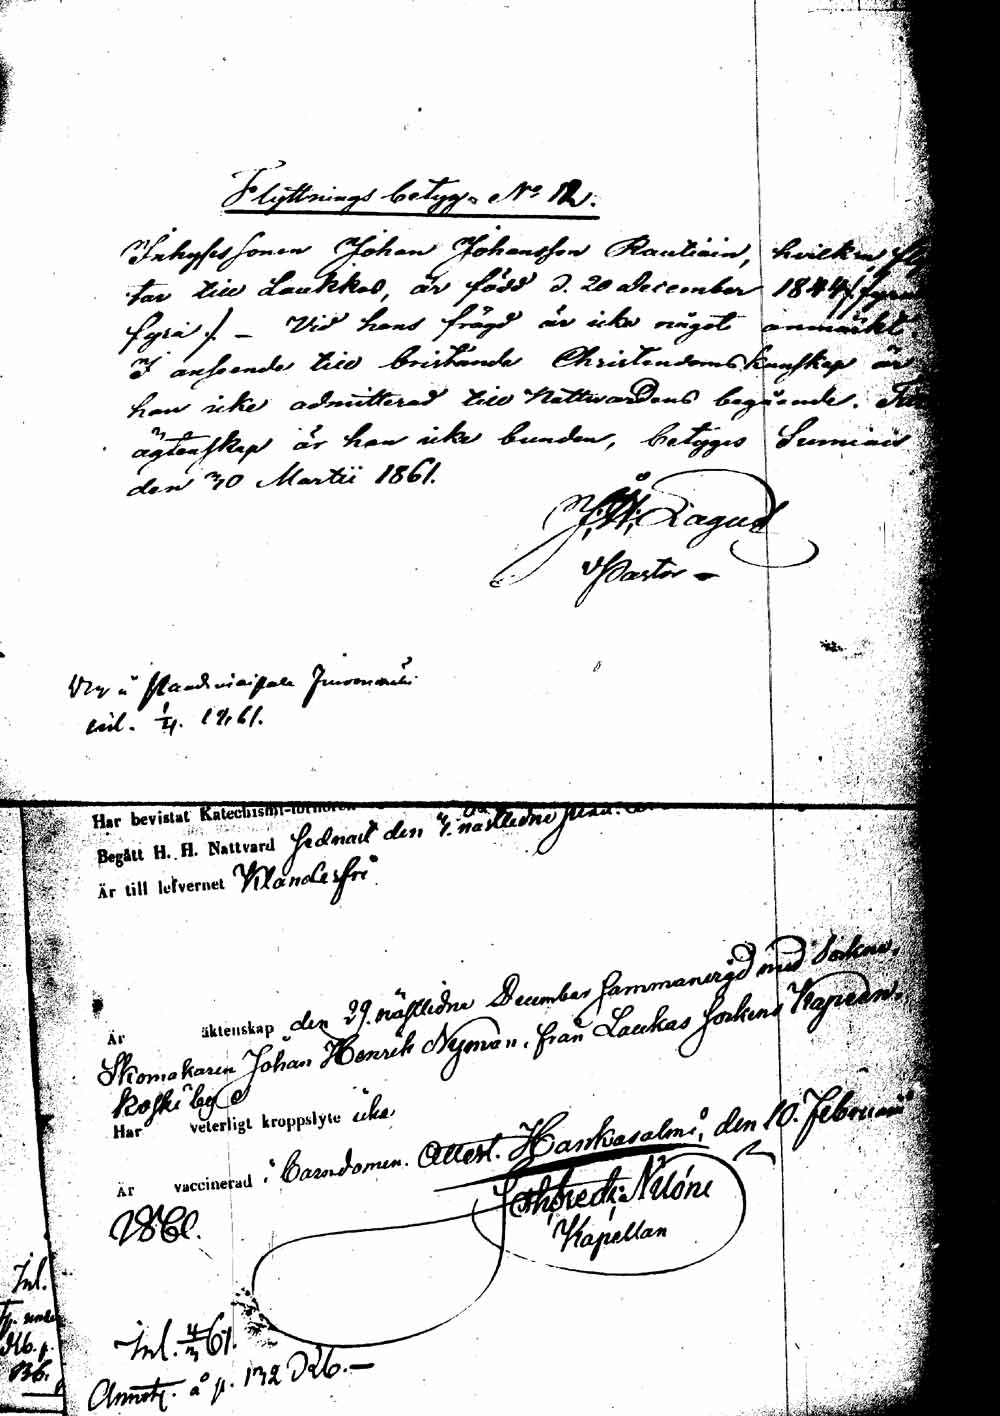 Flyttnings betyg No 12.
Inhyses sonen Johan Johansson Rautiain, hvilken fly
tar till Laukkas, är född d. 20 december 1844 (fyra
fyra). - Vid hans frägd är icke något anmärkt.
I anseende till bristande Christendoms kunskap är
han icke admitterad till Nattvardens begående. Till
ägtenskap är han icke bunden, betygas Sumiais
den 30 Martii 1861.
Lagus
v Pastor -
inl. 1/4. 1861.
Har bevistat Katechismi-förhören
Begått H. H. Nattvard sednast den 7. nästledne
Är till lefvernet Klanderfri
Är äktenskap den 29. nästledne December sammanvigd med Sockne
Skomakaren Johan Henrik Nyman, från Laukas Sockens Kapeen
koski by
Har veterligt kroppslyte icke
Är vaccinerad i barndomen. Attest. Hankasalmi, den 10. Februarii
1861.
Joh. Fredr. Nilóni
Kapellan
Inl. 4/3 61.
Annot. å p. 132 Kb. -
Inl.
Kb. p.